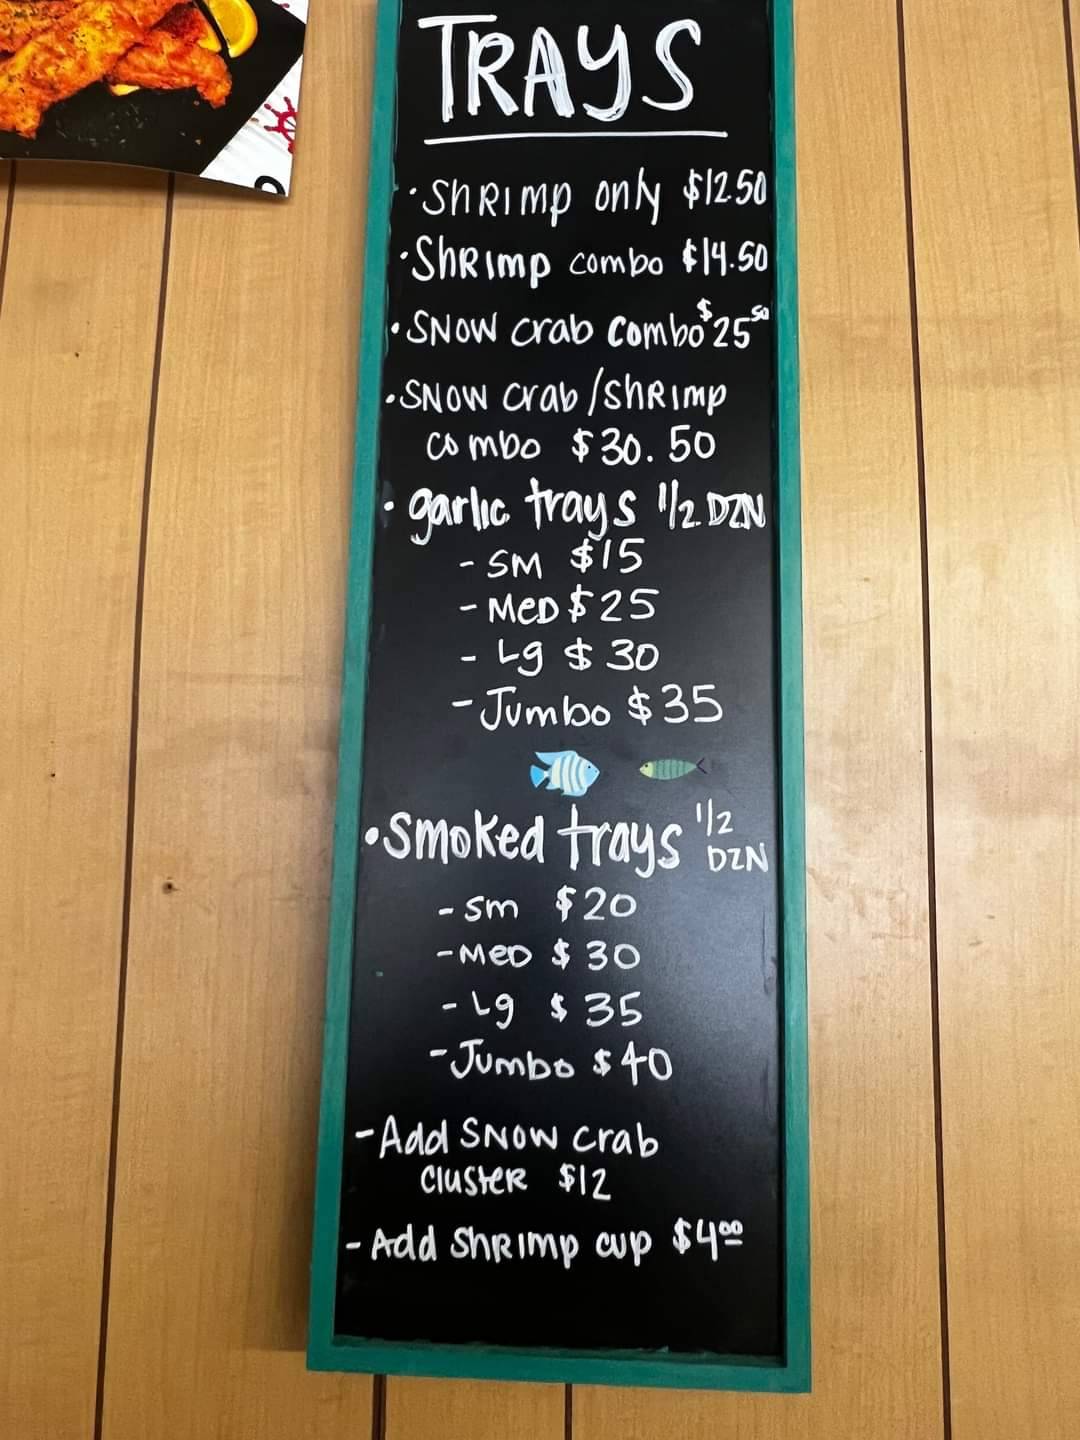 TRAYS
• ShRImp only $12.50
• ShRImp combo $14.50
• SNOW crab combo $25 50
• SNOW crab/ShRImp
combo $30.50
• garlic trays 1/2 DZN
- SM $15
- MeD $25
- Lg $30
- Jumbo $35
• Smoked trays 1/2 DZN
- sm $20
- Med $30
- Lg $35
- Jumbo $40
- Add SNOW crab
cluster $12
- Add ShRImp cup $4.00